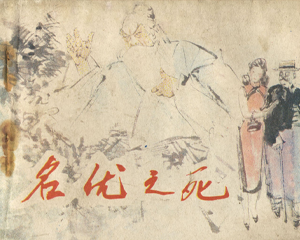 名优之死